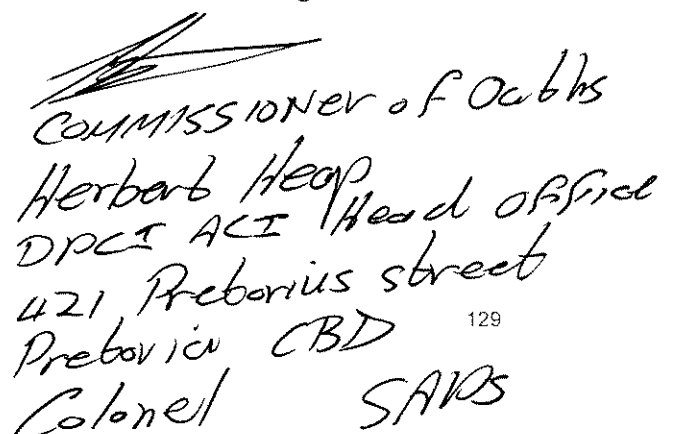 Commissioner of Oaths
Herbert Heap
DPCI ACI Head Office
421 Pretorius street
Pretoria CBD
129
Colonel SAPS